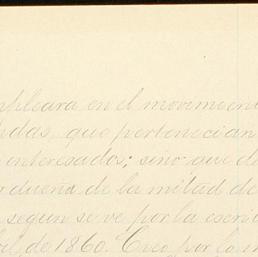 empleara en el movimien
das, que pertenecian
interesados; sino que d
dueña de la mitad de
segun se ve por la escri
de 1860. Creo por lo